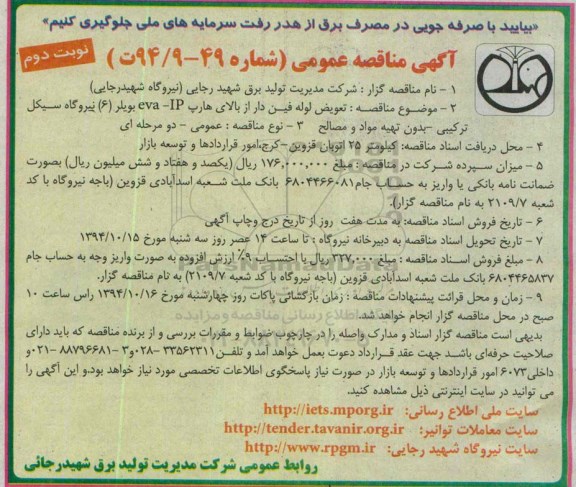 «بیایید با صرفه جویی در مصرف برق از هدر رفت سرمایه های ملی جلوگیری کنیم»
آگهی مناقصه عمومی (شماره ۴۹-۹۴/۹ت)
نوبت دوم
۱ - نام مناقصه گزار : شرکت مدیریت تولید برق شهید رجایی (نیروگاه شهیدرجایی)
۲ - موضوع مناقصه : تعویض لوله فین دار از بالای هارپ eva -IP بویلر (۶) نیروگاه سیکل
ترکیبی -بدون تهیه مواد و مصالح ۳ - نوع مناقصه : عمومی - دو مرحله ای
۴ - محل دریافت اسناد مناقصه: کیلومتر ۲۵ اتوبان قزوین -کرج،امور قراردادها و توسعه بازار
۵ - میزان سپرده شرکت در مناقصه : مبلغ ۱۷۶,۰۰۰,۰۰۰ ریال (یکصد و هفتاد و شش میلیون ریال) بصورت
ضمانت نامه بانکی یا واریز به حساب جام۶۸۰۴۴۶۶۰۸۱ بانک ملت شعبه اسدآبادی قزوین (باجه نیروگاه با کد
شعبه ۲۱۰۹/۷ به نام مناقصه گزار).
۶ - تاریخ فروش اسناد مناقصه: به مدت هفت روز از تاریخ درج وچاپ آگهی
۷ - تاریخ تحویل اسناد مناقصه به دبیرخانه نیروگاه : تا ساعت ۱۴ عصر روز سه شنبه مورخ ۱۳۹۴/۱۰/۱۵
۸ - مبلغ فروش اسناد مناقصه : مبلغ ۳۲۷,۰۰۰ریال با احتساب ۹٪ ارزش افزوده به صورت واریز وجه به حساب جام
۶۸۰۴۴۶۵۸۳۷ بانک ملت شعبه اسدآبادی قزوین (باجه نیروگاه با کد شعبه ۲۱۰۹/۷) به نام مناقصه گزار.
۹ - زمان و محل قرائت پیشنهادات مناقصه : زمان بازگشائی پاکات روز چهارشنبه مورخ ۱۳۹۴/۱۰/۱۶ راس ساعت ۱۰
صبح در محل مناقصه گزار انجام خواهد شد.
بدیهی است مناقصه گزار اسناد و مدارک واصله را در چارچوب ضوابط و مقررات بررسی و از برنده مناقصه که باید دارای
صلاحیت حرفه‌ای باشد جهت عقد قرارداد دعوت بعمل خواهد آمد و تلفن ۳۳۵۶۲۳۱۱-۰۲۸ و۳ -۸۸۷۹۶۶۸۱-۰۲۱و
داخلی۶۰۷۳ امور قراردادها و توسعه بازار در صورت نیاز پاسخگوی اطلاعات تخصصی مورد نیاز خواهد بود.و این آگهی را
می توانید در سایت اینترنتی ذیل مشاهده کنید.
سایت ملی اطلاع رسانی: http://iets.mporg.ir
سایت معاملات توانیر: http://tender.tavanir.org.ir
سایت نیروگاه شهید رجایی: http://www.rpgm.ir
روابط عمومی شرکت مدیریت تولید برق شهیدرجائی